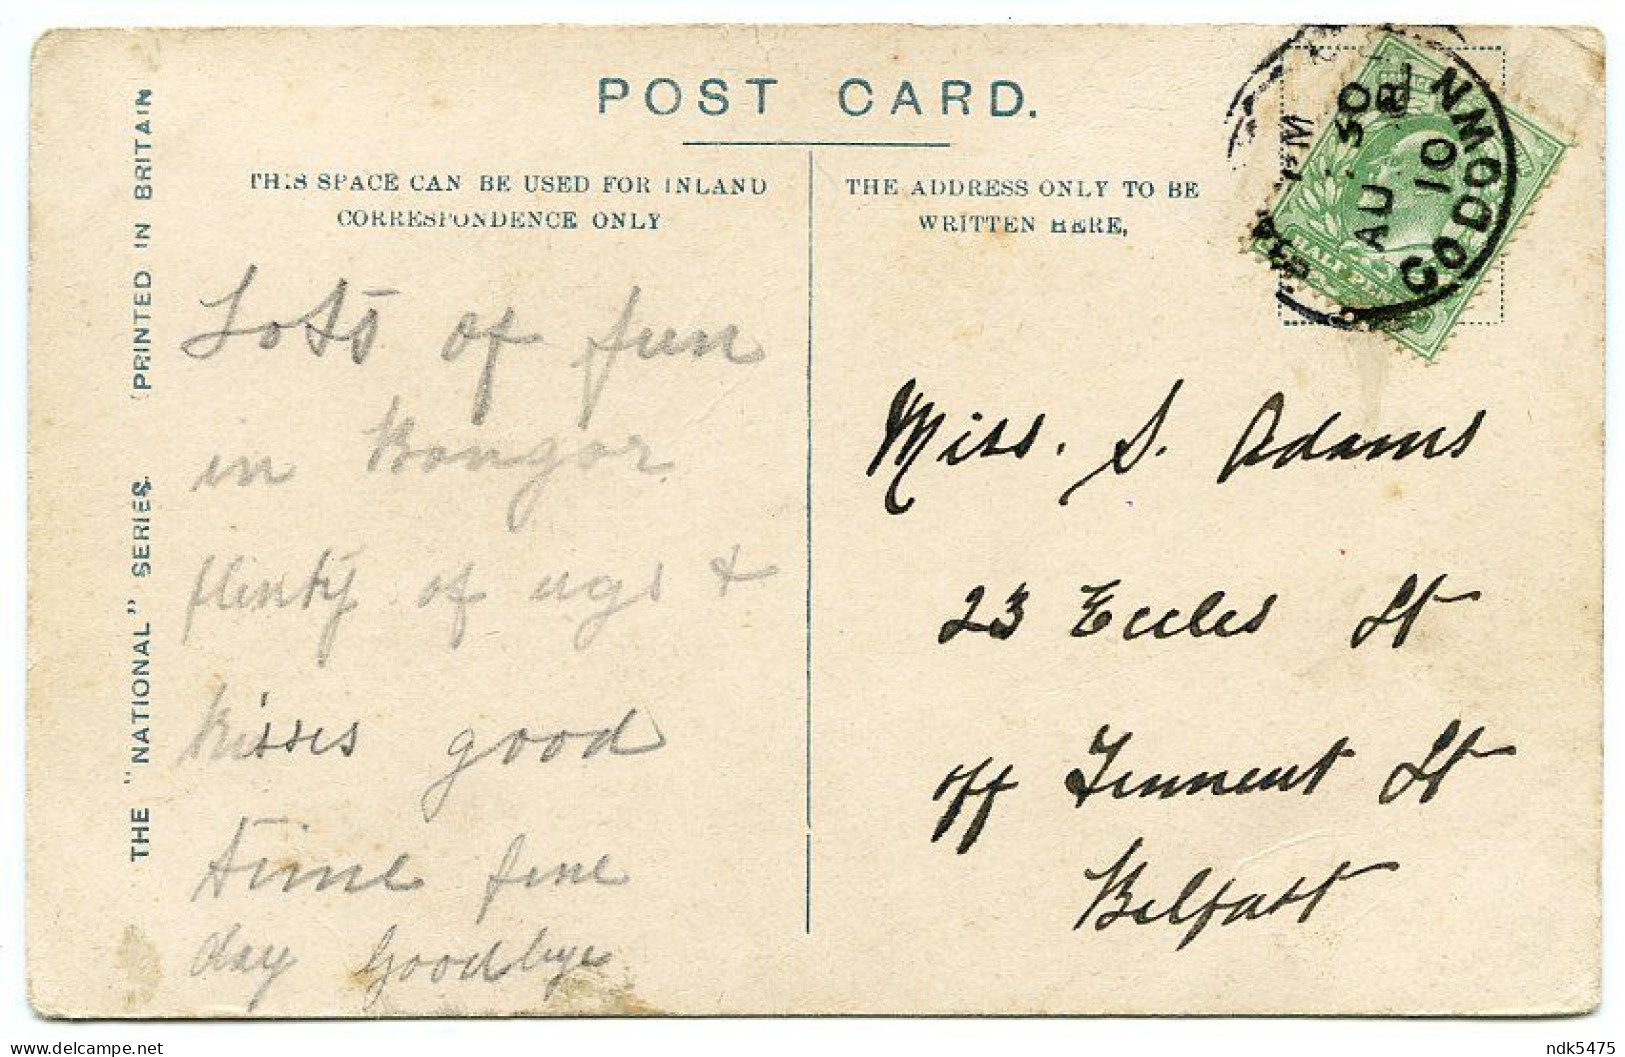 POST CARD.
THIS SPACE CAN BE USED FOR INLAND
CORRESPONDENCE ONLY
THE ADDRESS ONLY TO BE
WRITTEN HERE,
THE "NATIONAL" SERIES. PRINTED IN BRITAIN
Lots of fun
in Bangor
plenty of ugs +
kisses good
time fine
day Goodbye
Miss. S. Adams
23 Eccles St
off Tennent St
Belfast
AU 30
10
HALF
delcampe.net
ndk5475